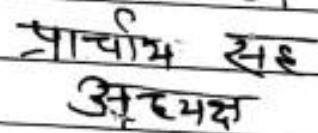 प्राचार्य सह
अध्यक्ष